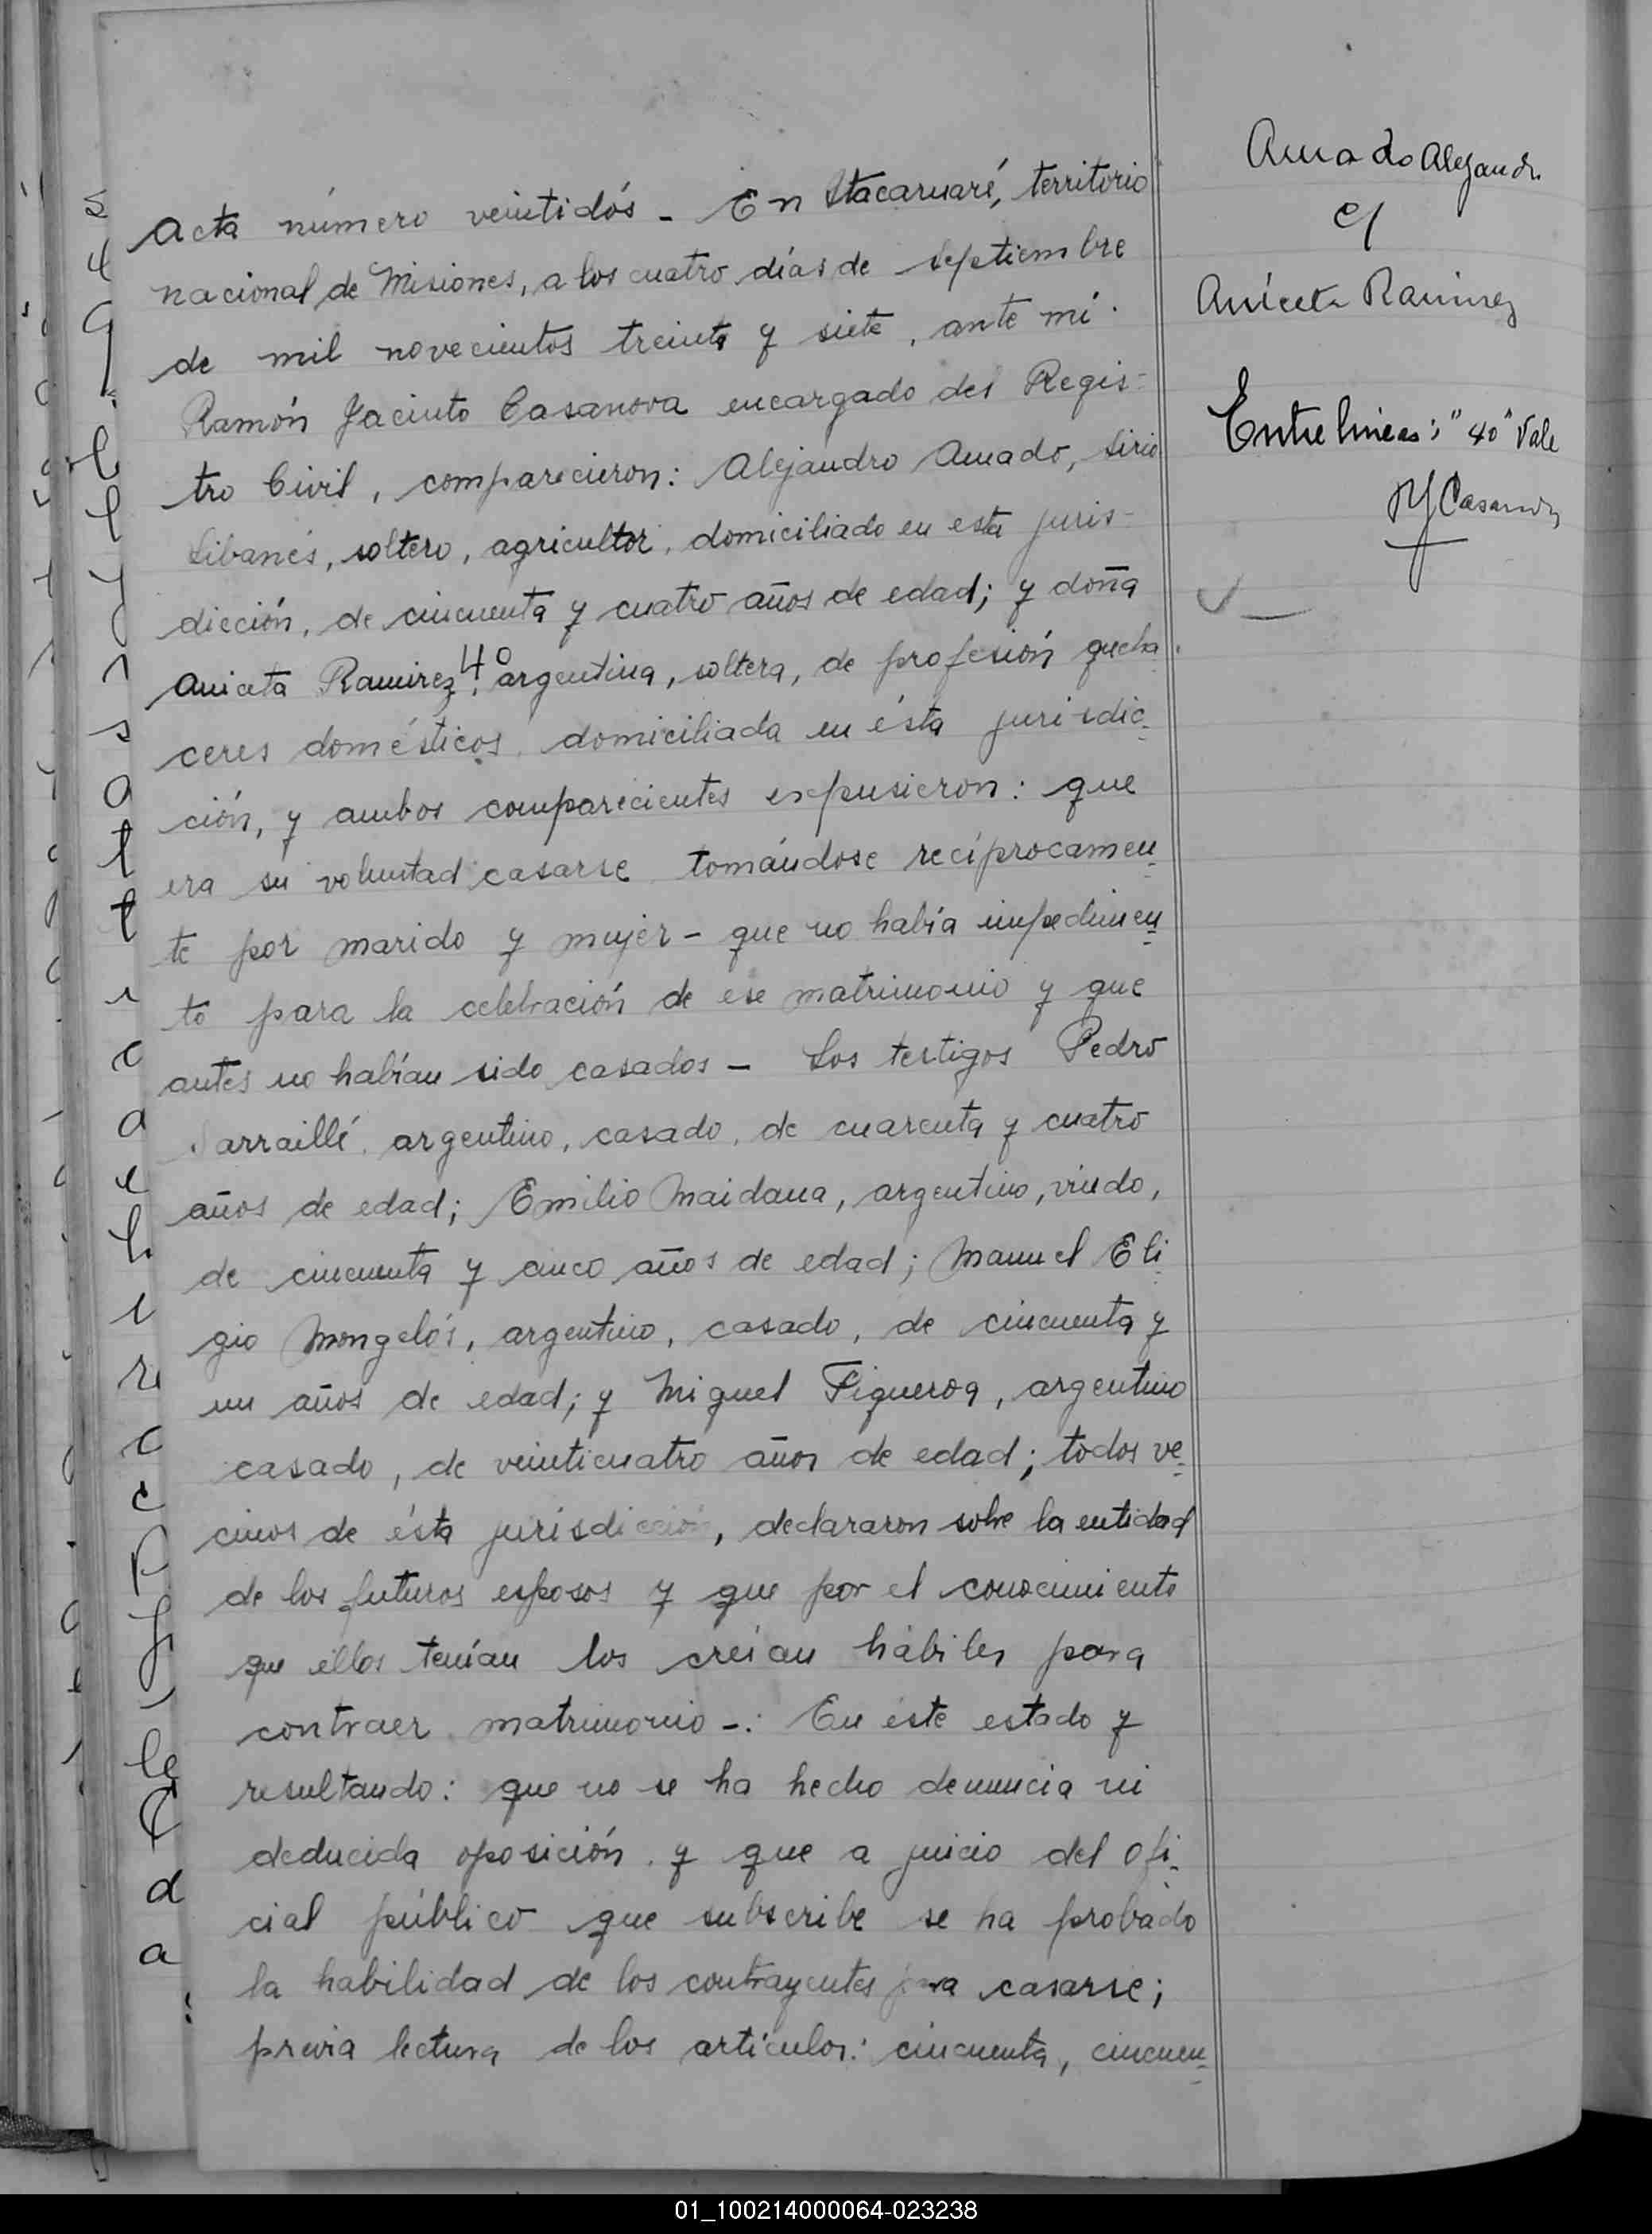 Acta número veintidós - En Itacaruaré, territorio
nacional de Misiones, a los cuatro días de Septiembre
de mil novecientos treinta y siete, ante mí
Ramón Jacinto Casanova encargado del Regis-
tro Civil, comparecieron: Alejandro Amado, Sirio
Libanés, soltero, agricultor, domiciliado en esta juris-
dicción, de cincuenta y cuatro años de edad; y doña
40
Aniceta Ramirez, argentina, soltera, de profesión queha
ceres domésticos, domiciliada en ésta jurisdic-
ción, y ambos comparecientes expusieron: que
era su voluntad casarse tomándose recíprocamen-
te por marido y mujer - que no había impedimen-
to para la celebración de ese matrimonio y que
antes no habían sido casados - Los testigos Pedro
Sarraillé, argentino, casado, de cuarenta y cuatro
años de edad; Emilio Maidana, argentino, viudo,
de cincuenta y cinco años de edad; Manuel Eli-
gio Mongelós, argentino, casado, de cincuenta y
un años de edad; y Miguel Figueroa, argentino
casado, de veinticuatro años de edad; todos ve-
cinos de ésta jurisdicción, declararon sobre la entidad
de los futuros esposos y que por el conocimiento
que ellos tenían los creían hábiles para
contraer matrimonio -: En éste estado y
resultando: que no se ha hecho denuncia ni
deducida oposición, y que a juicio del ofi-
cial público que subscribe se ha probado
la habilidad de los contrayentes para casarse;
previa lectura de los artículos: cincuenta, cincuen-
Amado Alejandr.
c/
Aniceta Ramirez
Entre lineas: "40" Vale
RJCasanova
01_100214000064-023238